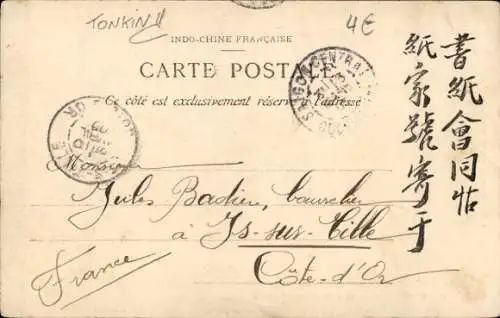 TONKIN
4€
INDO-CHINE FRANÇAISE
CARTE POSTALE
Ce côté est exclusivement réservé à l'adresse
SAIGON CENTRAL
CÔTE D'OR
Monsieur
Jules Badier, bourrelier
à Is-sur-Tille
Côte-d'Or
France
書紙會同帖
紙家號寄于